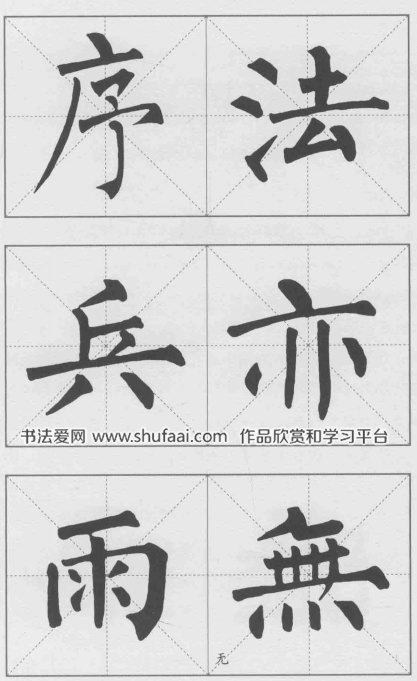 序法
兵亦
书法爱网 www.shufaai.com 作品欣赏和学习平台
雨無
无